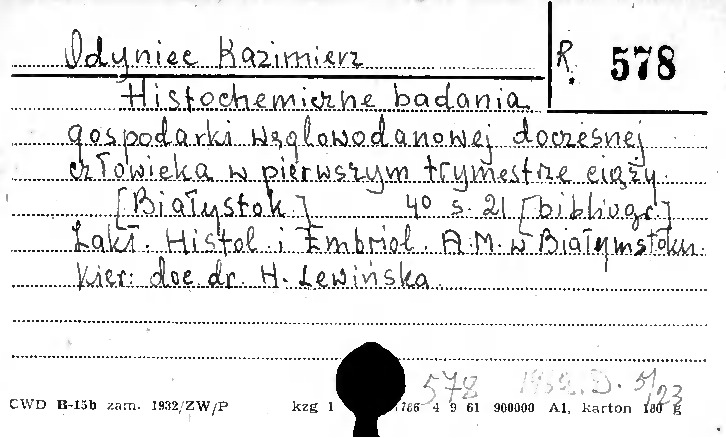 Odyniec Kazimierz
R. 578
Histochemiczne badania
gospodarki węglowodanowej doczesnej
człowieka w pierwszym trymestrze ciąży.
[Białystok] 4° s. 21 [bibliogr.]
Zakł. Histol. i Embriol. A.M. w Białymstoku.
Kier: doc. dr. H. Lewińska.
578 1962. D. 5/23
CWD B-15b zam. 1932/ZW/P kzg 1 1786 4 9 61 900000 A1, karton 180 g